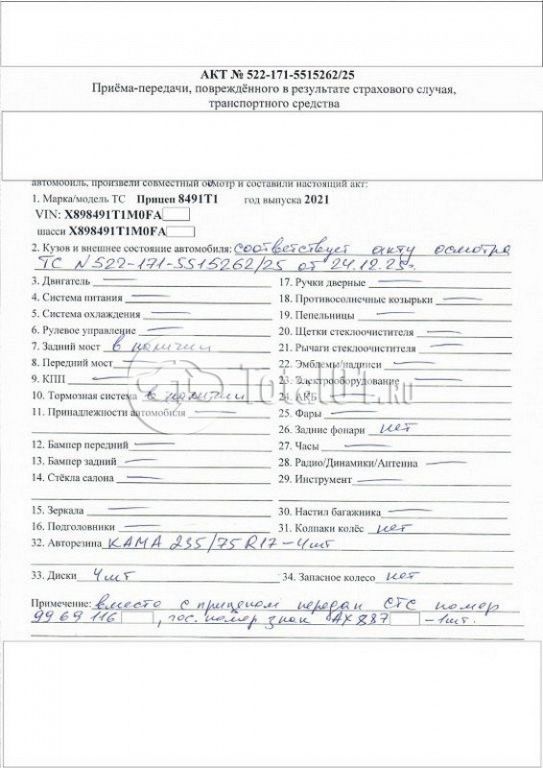 АКТ № 522-171-5515262/25
Приёма-передачи, повреждённого в результате страхового случая,
транспортного средства
автомобиль, произвели совместный осмотр и составили настоящий акт:
1. Марка/модель ТС Прицеп 8491Т1 год выпуска 2021
VIN: X898491T1M0FA
шасси X898491T1M0FA
2. Кузов и внешнее состояние автомобиля: соответствует акту осмотра
ТС N 522-171-5515262/25 от 24.12.25г.
3. Двигатель —
4. Система питания —
5. Система охлаждения —
6. Рулевое управление —
7. Задний мост в наличии
8. Передний мост —
9. КПП —
10. Тормозная система в наличии
11. Принадлежности автомобиля —
12. Бампер передний —
13. Бампер задний —
14. Стёкла салона —
15. Зеркала —
16. Подголовники —
17. Ручки дверные —
18. Противосолнечные козырьки —
19. Пепельницы —
20. Щетки стеклоочистителя —
21. Рычаги стеклоочистителя —
22. Эмблемы/надписи —
23. Электрооборудование —
24. АКБ —
25. Фары —
26. Задние фонари нет
27. Часы —
28. Радио/Динамики/Антенна —
29. Инструмент —
30. Настил багажника —
31. Колпаки колёс нет
32. Авторезина КАМА 235/75 R17 – 4шт
33. Диски 4шт
34. Запасное колесо нет
Примечание: вместо с прицепом передан СТС номер
9969 116 , гос. номер знак АХ887 – 1шт.
Total01.ru